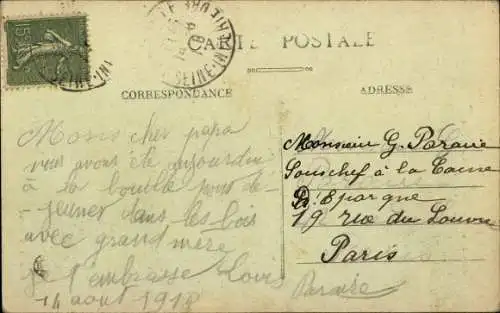 CARTE POSTALE
CORRESPONDANCE
ADRESSE
Mons cher papa
nous avons été aujourdui
à la bouille pour de-
jeuner dans les bois
avec grand mère
je t'embrasse Louis
14 aout 1918
Monsieur G. Paraire
Sous chef à la Caisse
d'Epargne
19 rue du Louvre
Paris
Paraire
SEINE-INF
SEINE-INF